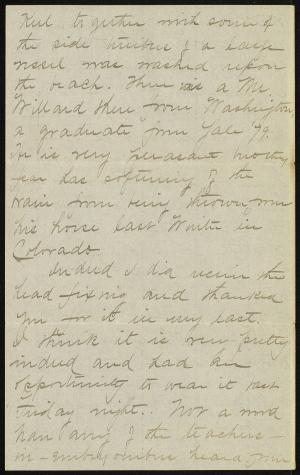 Keel together with some of
the side timbers of a large
vessel was washed upon
the beach. There is a Mr.
Willard there from Washington
a graduate from Yale 79.
He is very pleasant but they
fear has softening of the
brain from being thrown from
his horse last Winter in
Colorado
Indeed I did receive the
head fixing and thanked
you for it in my last.
I think it is very pretty
indeed and had an
opportunity to wear it last
Friday night. Not a word
have any of the teachers -
in - embryo ever heard from